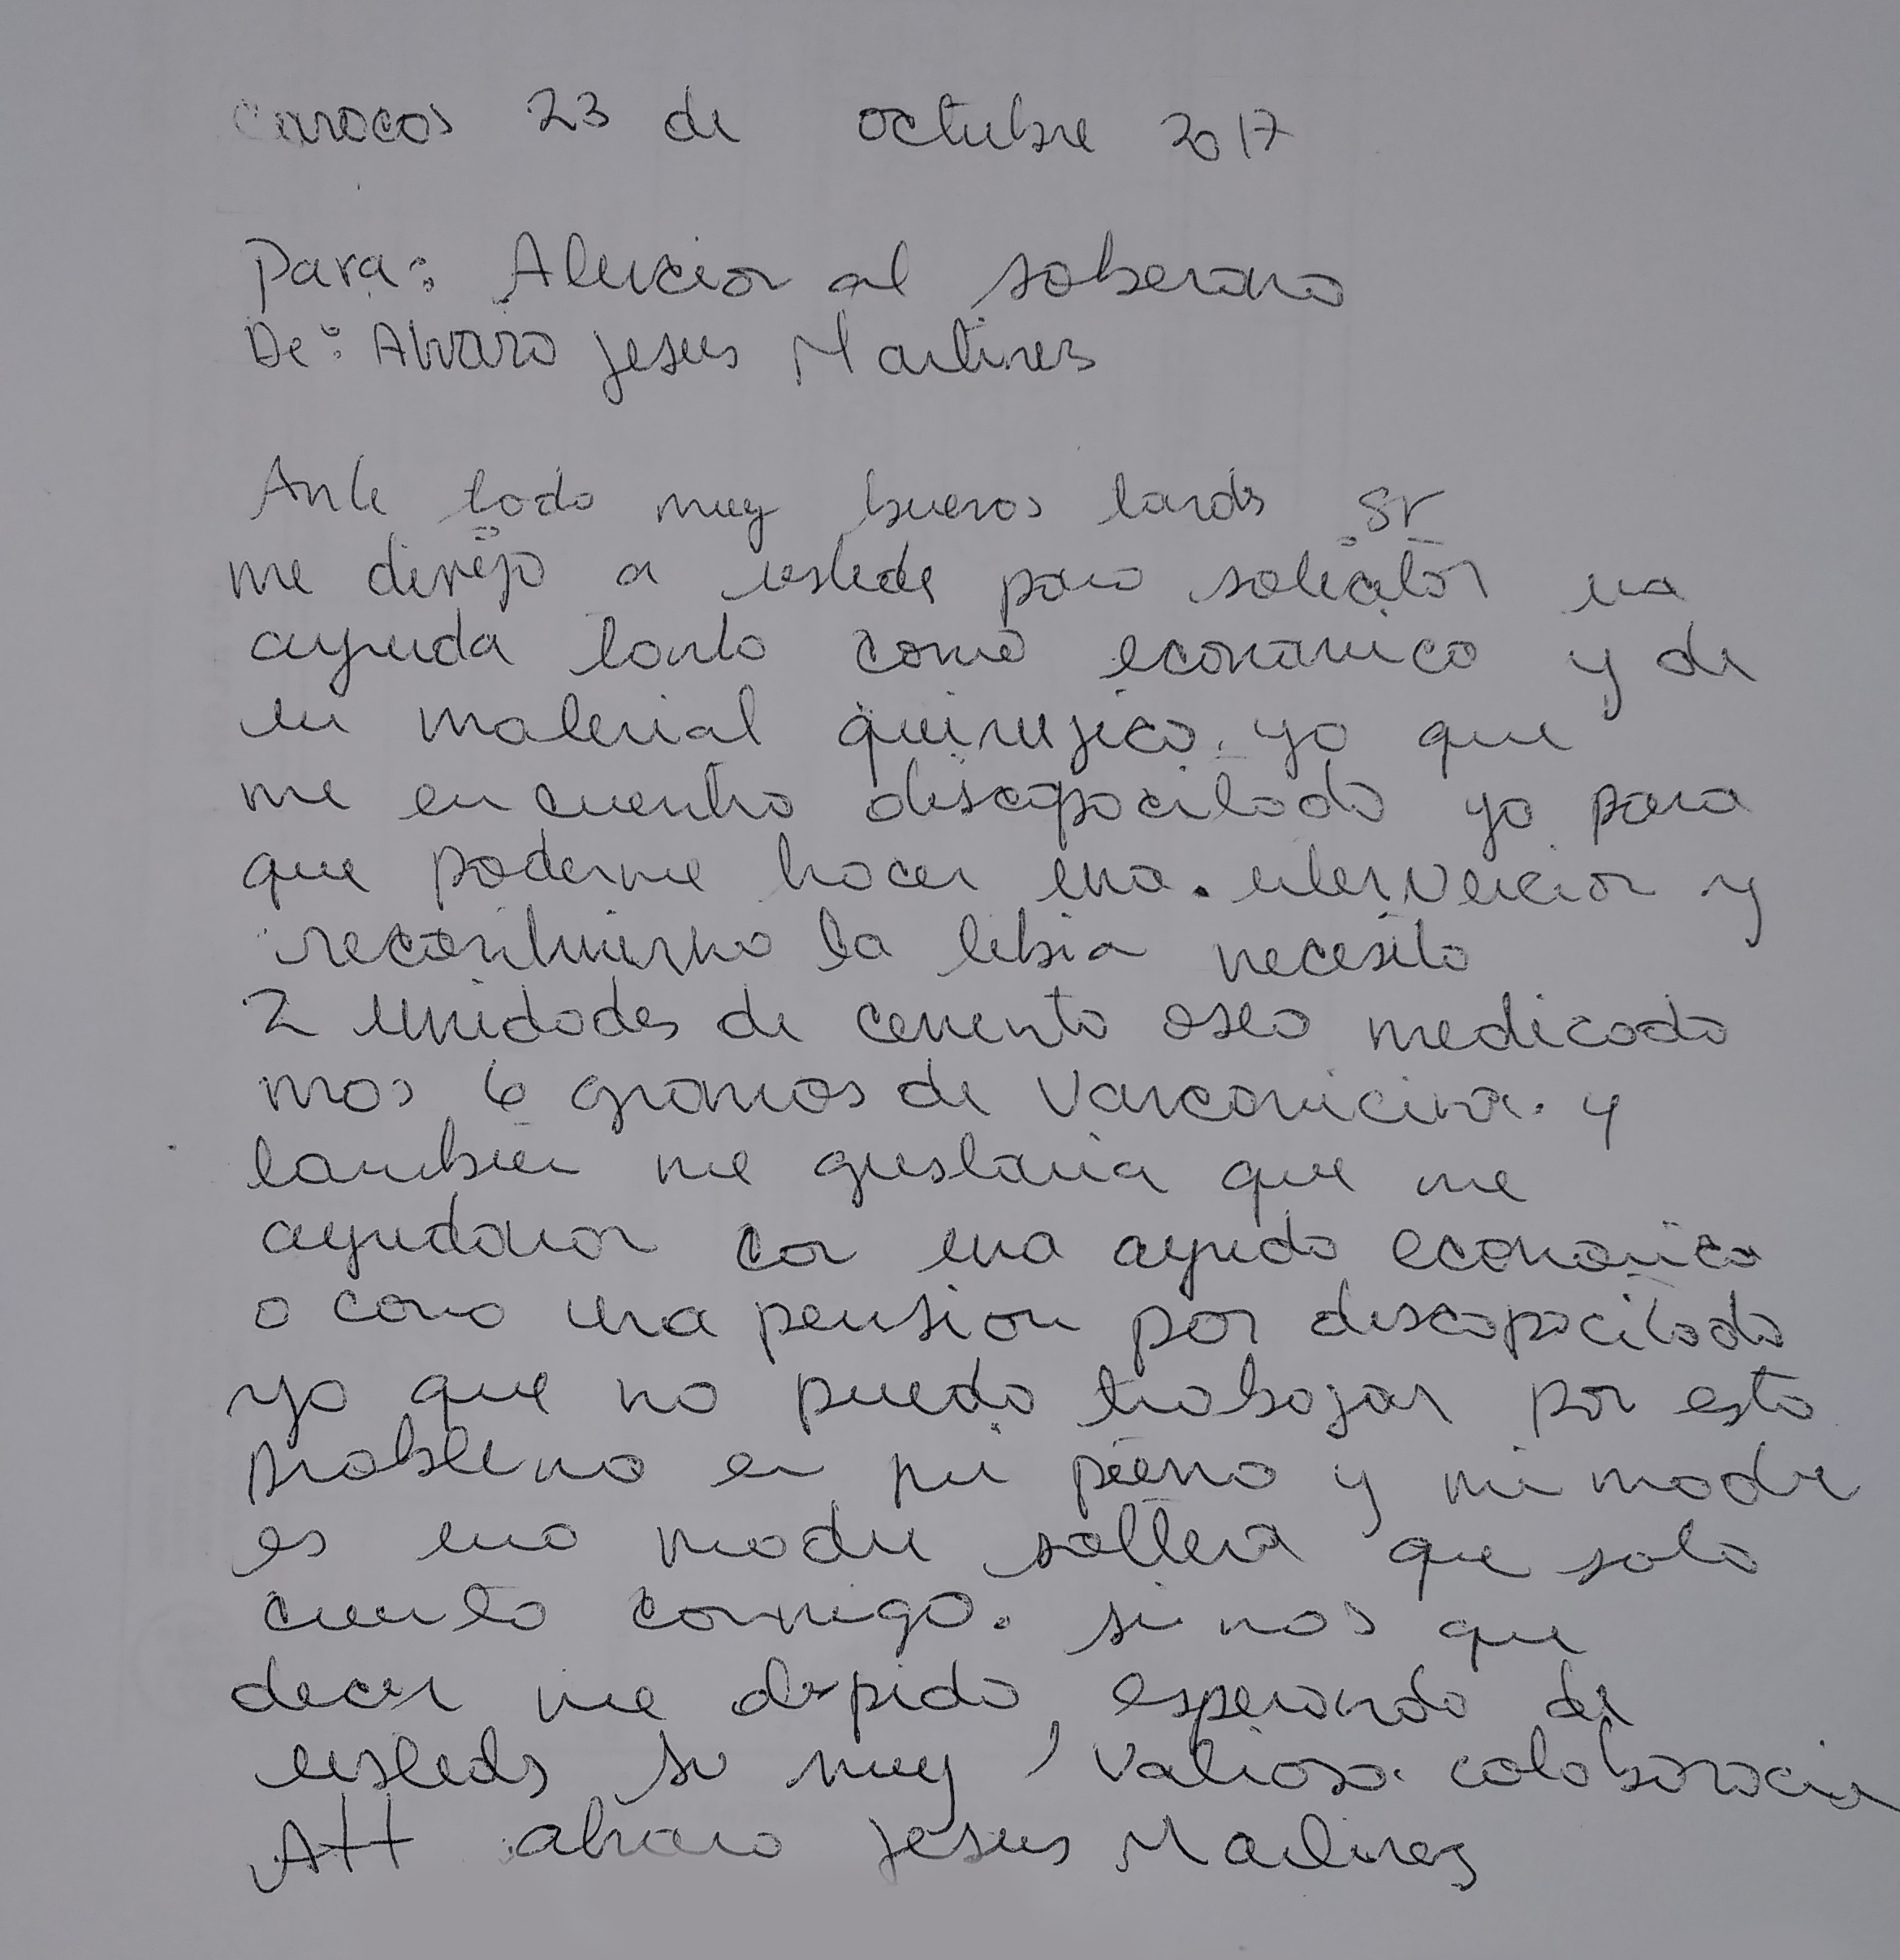 Caracas 23 de octubre 2017
Para: Atencion al soberano
De: Alvaro Jesus Martines
Ante todo muy buenos tards Sr
me dirijo a ustede para solicitar una
ayuda tanto como economico y de
un material quirujico. ya que
me encuentro discapacitado ya para
que poderme hacer una. intervencion y
recontruirmo la tibia necesito
2 unidades de cemento oseo medicado
mas 6 gramos de vancomicina. y
tambien me gustaria que me
ayudaran con una ayuda economica
o como una pension por discapacitado
ya que no puedo trabajar por esto
problema en mi pierna y mi madre
es una madre soltera que solo
cuenta conmigo. si nos que
decir me despido, esperando de
usteds su muy valiosa colaboracion
Att alvaro Jesus Martines